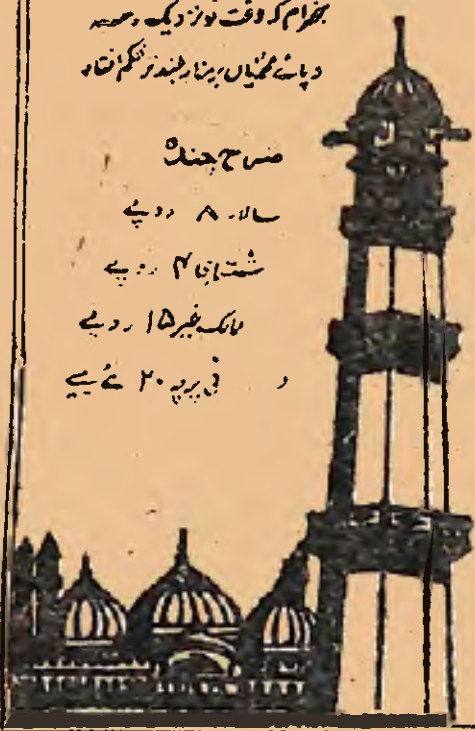 بخرام کہ وقت تو نزدیک رسید
و پائے محمدیاں بر منار بلند تر محکم افتاد
شرح چندہ
سالانہ ۸ روپے
ششماہی ۴ روپے
ممالک غیر ۱۵ روپے
فی پرچہ ۲۰ نئے پیسے